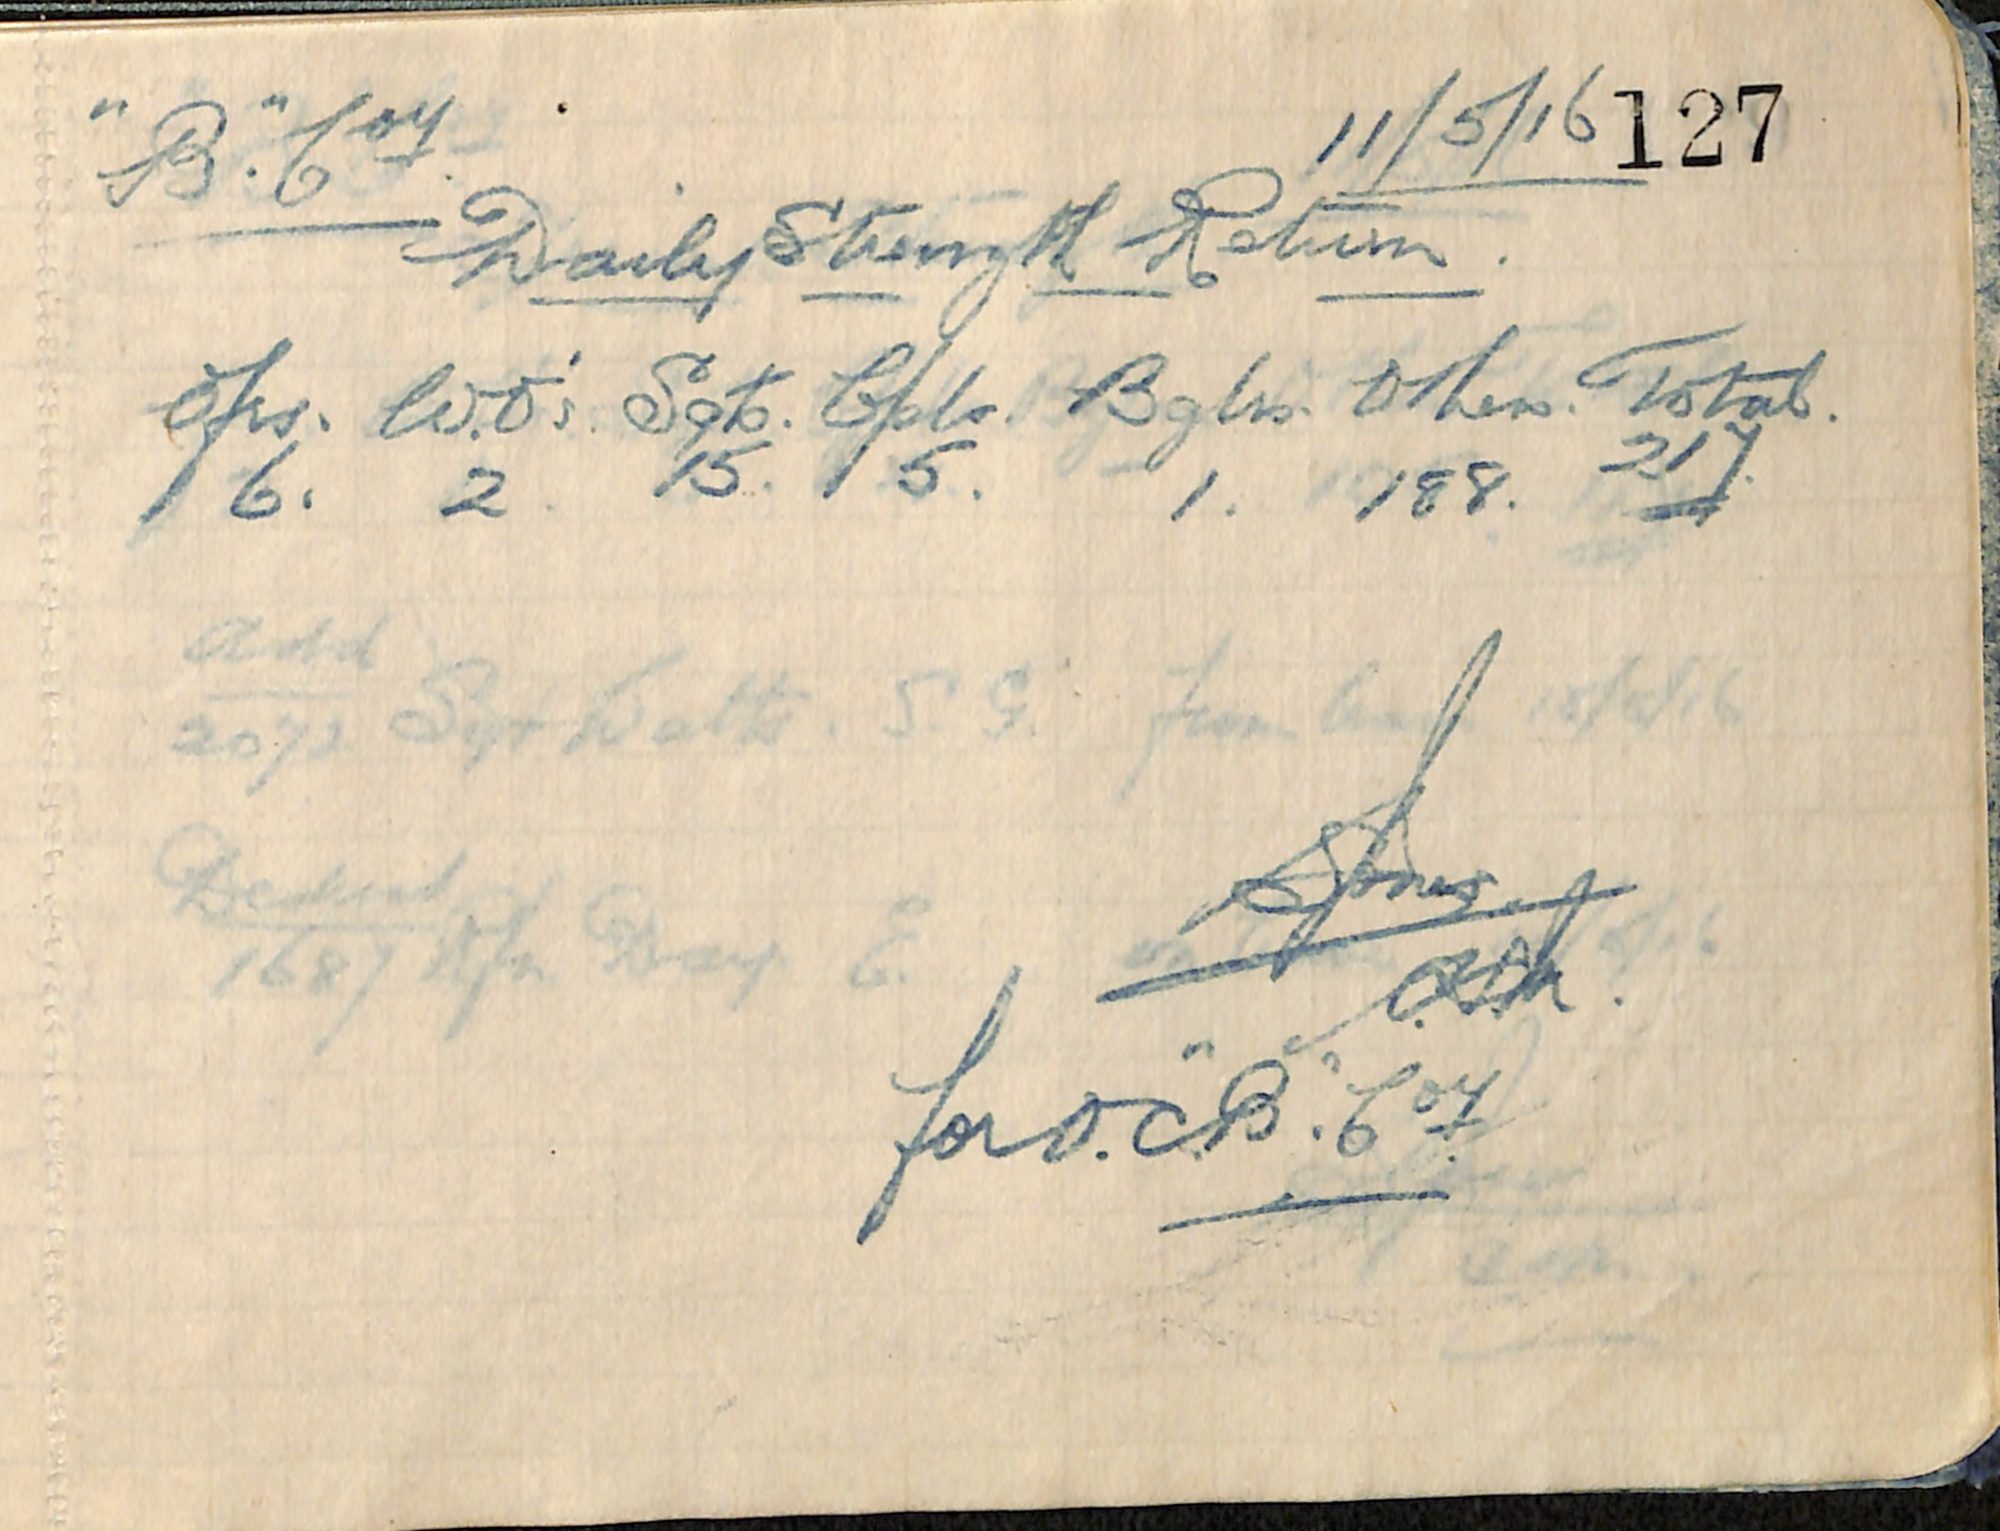 "B" Coy. 11/5/16 127
Daily Strength Return.
Ofrs. W.O's. Sgts. Cpls. Bglrs. Others. Total.
6. 2. 15. 5. 1. 188. 217.
Add
2072 Sgt Watts. S. G. from 10/5/16
Deduct
1687 Rfn Day E.
SJones.
C.S.M.
for O.C "B". Coy.